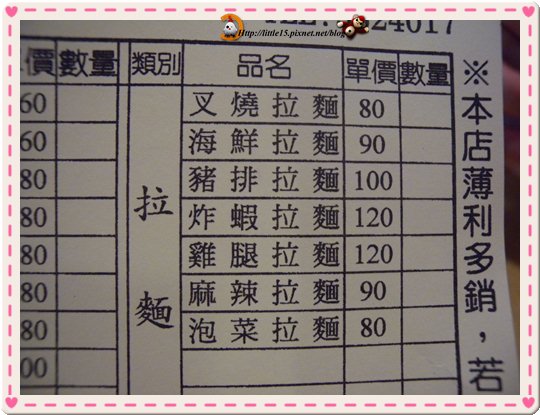 http://little15.pixnet.net/blog
價 數量 類別 品名 單價 數量
60 叉燒拉麵 80
60 海鮮拉麵 90
80 豬排拉麵 100
80 炸蝦拉麵 120
80 雞腿拉麵 120
80 麻辣拉麵 90
80 泡菜拉麵 80
00
拉麵
※本店薄利多銷，若